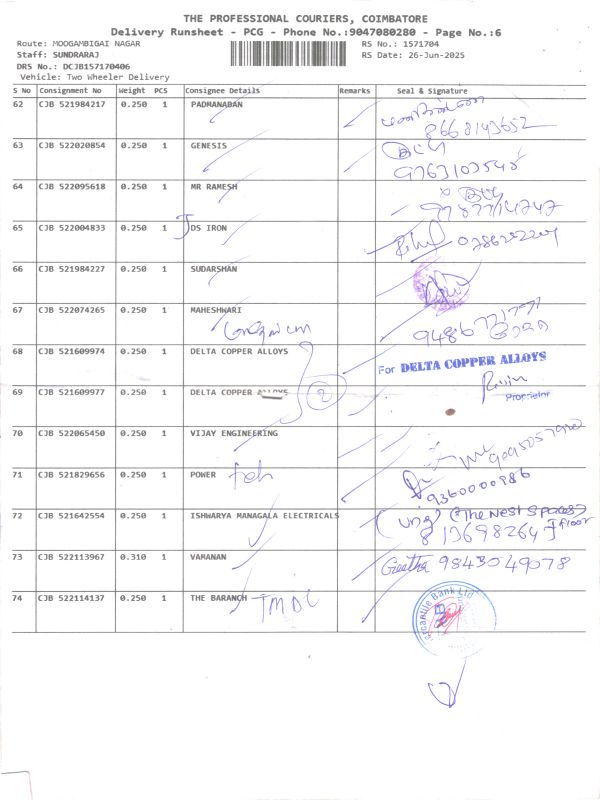 THE PROFESSIONAL COURIERS, COIMBATORE
Delivery Runsheet - PCG - Phone No.:9047080280 - Page No.:6
Route: MOOGAMBIGAI NAGAR RS No.: 1571704
Staff: SUNDRARAJ RS Date: 26-Jun-2025
DRS No.: DCJB157170406
Vehicle: Two Wheeler Delivery
S No Consignment No Weight PCS Consignee Details Remarks Seal & Signature
62 CJB 521984217 0.250 1 PADMANABAN
8668143652
63 CJB 522020854 0.250 1 GENESIS
9763103548
64 CJB 522095618 0.250 1 MR RAMESH
65 CJB 522004833 0.250 1 DS IRON
66 CJB 521984227 0.250 1 SUDARSHAN
67 CJB 522074265 0.250 1 MAHESHWARI
68 CJB 521609974 0.250 1 DELTA COPPER ALLOYS
For DELTA COPPER ALLOYS
Proprietor
69 CJB 521609977 0.250 1 DELTA COPPER ALLOYS 2
70 CJB 522065450 0.250 1 VIJAY ENGINEERING
71 CJB 521829656 0.250 1 POWER
9360000986
72 CJB 521642554 0.250 1 ISHWARYA MANAGALA ELECTRICALS
(The Nest Spaces)
8136982647 floor
73 CJB 522113967 0.310 1 VAMANAN Geetha 9843049078
74 CJB 522114137 0.250 1 THE BARANCH TMDC
Mercantile Bank Ltd